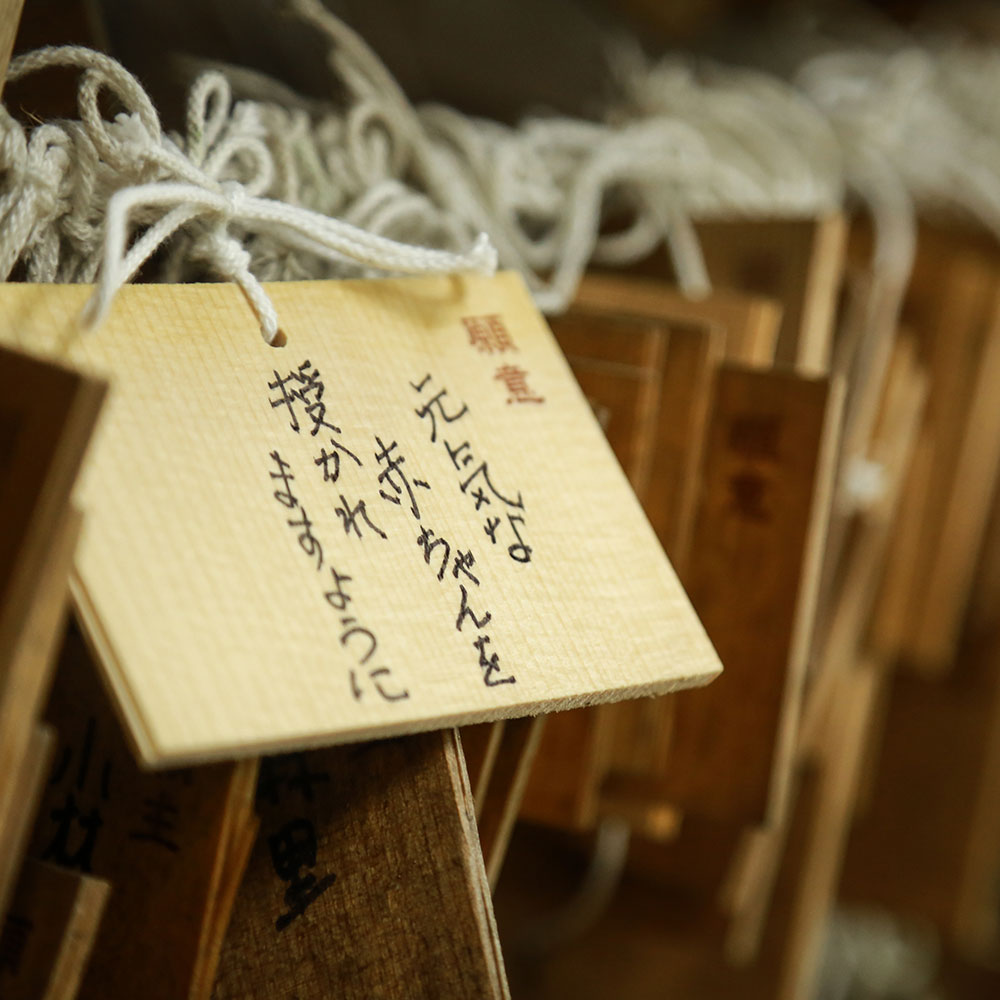 願意
元気な
赤ちゃんを
授かれ
ますように
小林